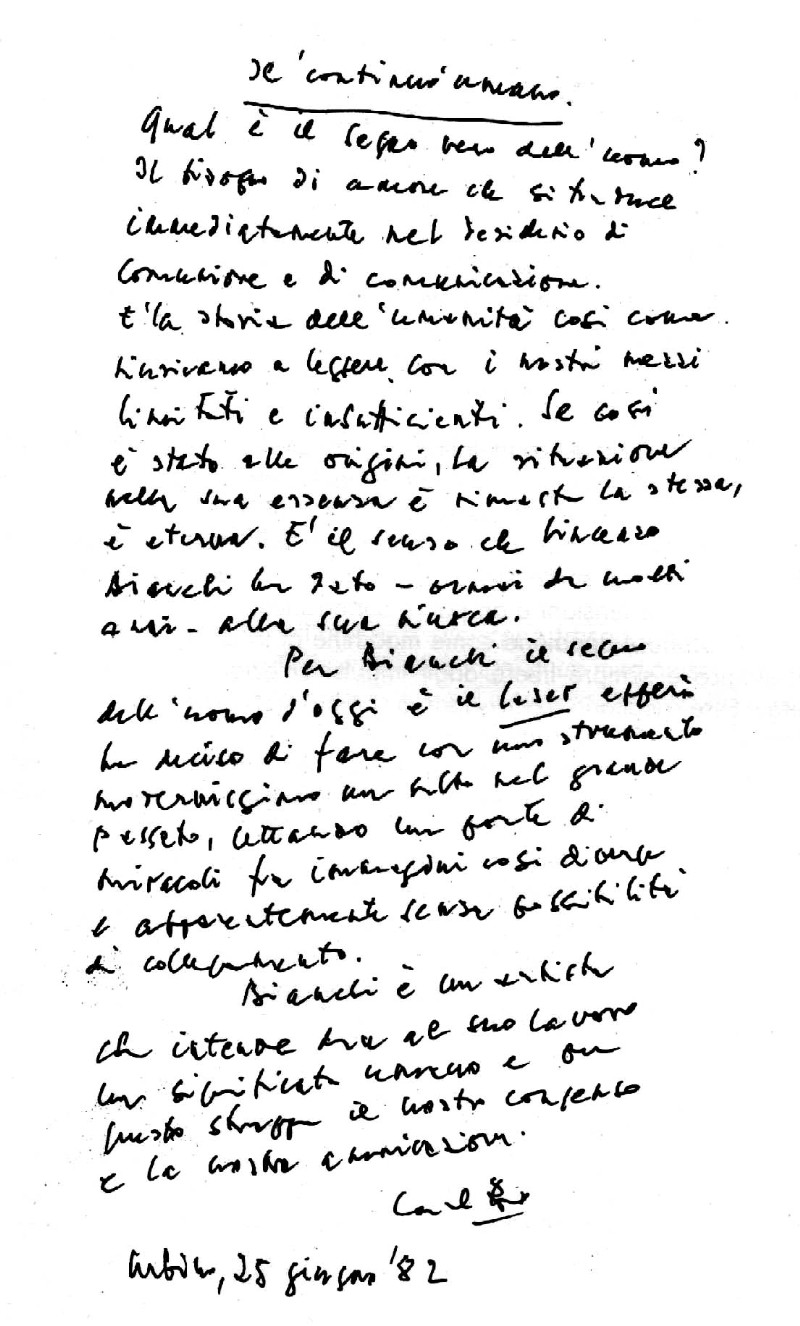 Il 'continuo' umano.
Qual è il segno vero dell'uomo?
Il bisogno di amore che si traduce
immediatamente nel desiderio di
comunione e di comunicazione.
E' la storia dell'umanità così come
riusciamo a leggere con i nostri mezzi
limitati e insufficienti. Se così
è stato alle origini, la situazione
nella sua essenza è rimasta la stessa,
è eterna. E' il senso che Vincenzo
Bianchi ha dato - ormai da molti
anni - alla sua ricerca.
Per Bianchi il segno
dell'uomo d'oggi è il laser e
ha deciso di fare con uno strumento
modernissimo un salto nel grande
passato, gettando un ponte di
miracoli fra immagini così diverse
e apparentemente senza possibilità
di collegamento.
Bianchi è un artista
che intende dare al suo lavoro
un significato umano e per
questo strappa il nostro consenso
e la nostra ammirazione.
Carlo Bo
Urbino, 25 giugno '82